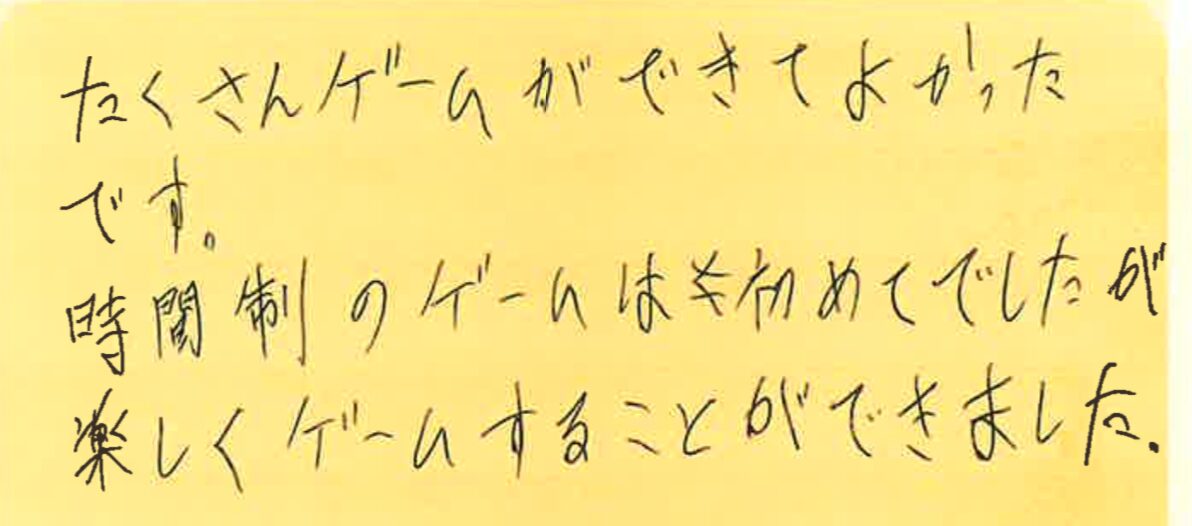 たくさんゲームができてよかった
です。
時間制のゲームは初めてでしたが
楽しくゲームすることができました.